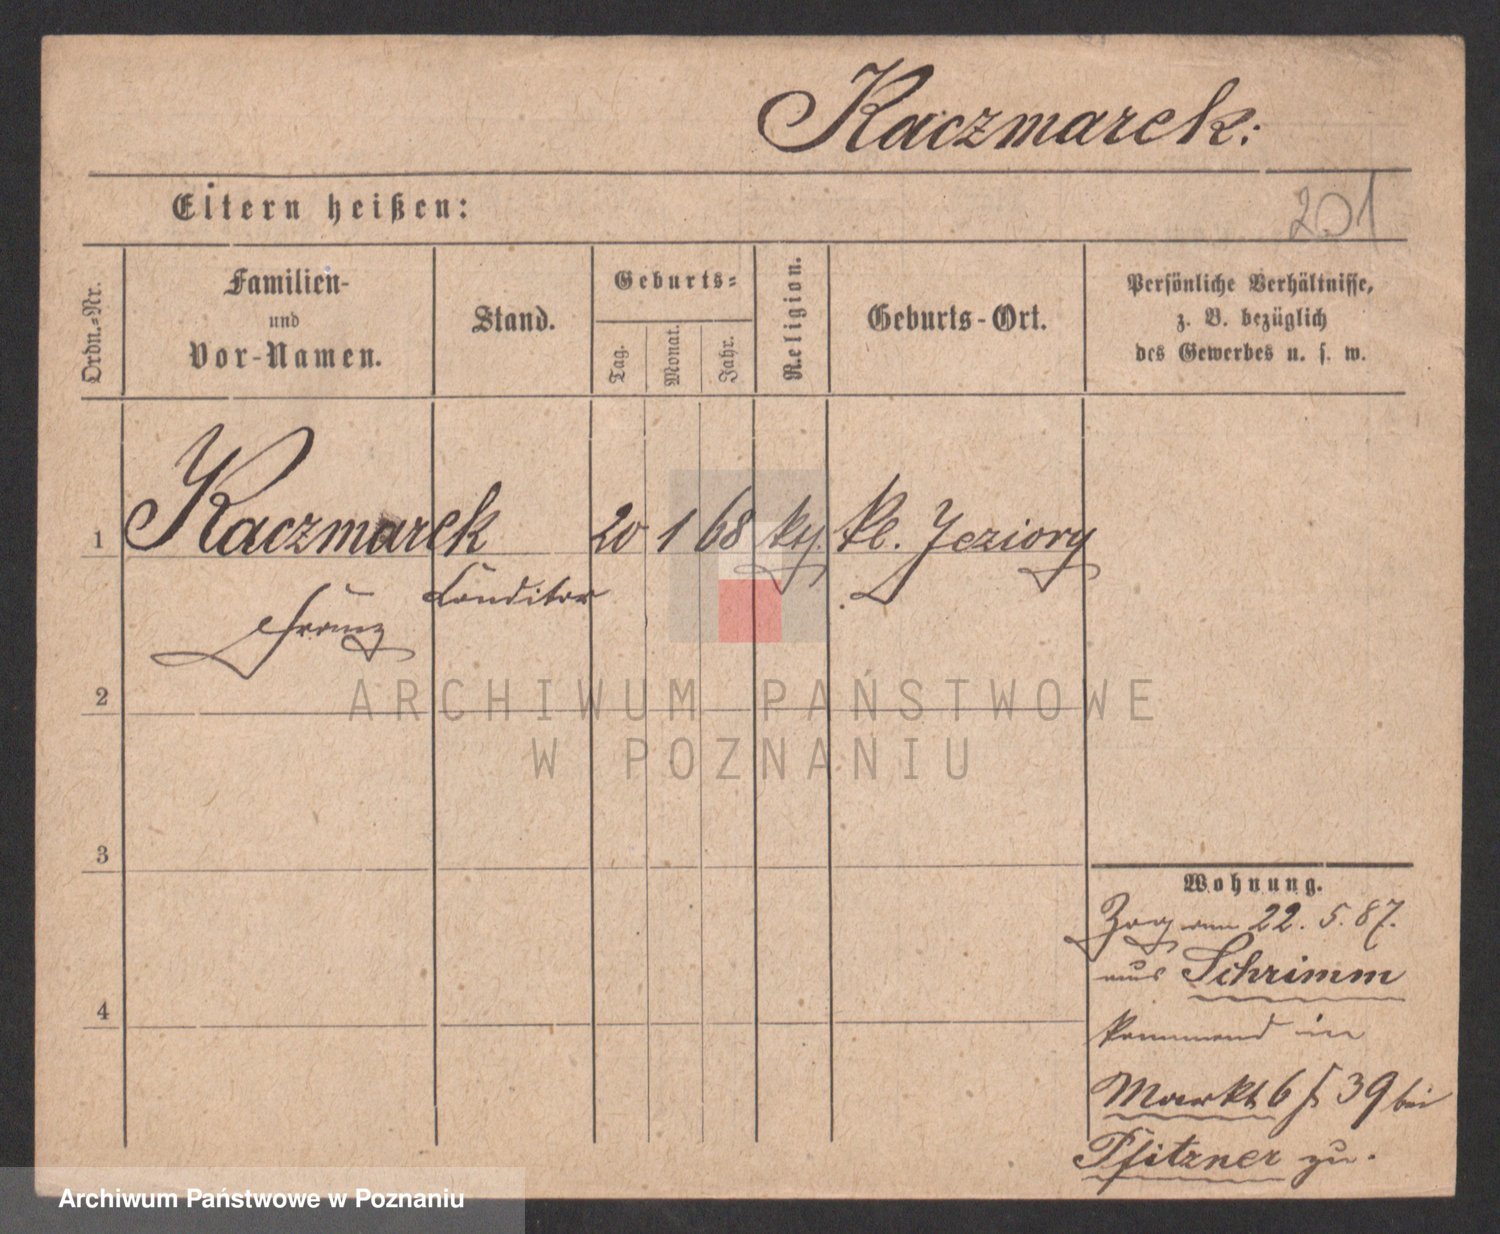 Kaczmarek:
Eltern heißen:
201
Ordn.-Nr.
Familien-
und
Vor-Namen.
Stand.
Geburts-
Tag.
Monat.
Jahr.
Religion.
Geburts-Ort.
Persönliche Verhältnisse,
z. B. bezüglich
des Gewerbes u. s. w.
1 Kaczmarek 20 1 68 Kl. Jeziory
Franz Conditor
2
ARCHIWUM PAŃSTWOWE
W POZNANIU
3
4
Wohnung.
Zog am 22. 5. 87.
aus Schrimm
kommend in
Markt 6 39 bei
Pfitzner zu.
Archiwum Państwowe w Poznaniu